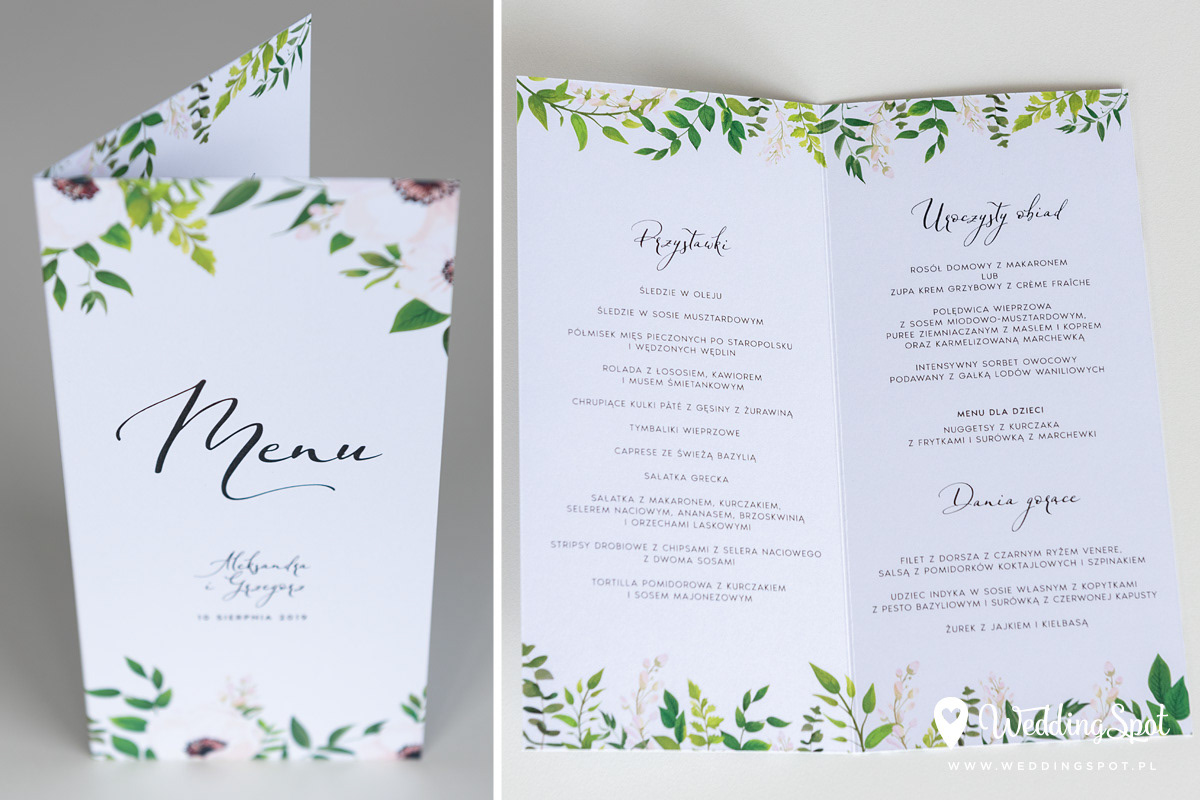 Menu
Aleksandra
i Grzegorz
10 SIERPNIA 2019
Przystawki
ŚLEDZIE W OLEJU
ŚLEDZIE W SOSIE MUSZTARDOWYM
PÓŁMISEK MIĘS PIECZONYCH PO STAROPOLSKU
I WĘDZONYCH WĘDLIN
ROLADA Z ŁOSOSIEM, KAWIOREM
I MUSEM ŚMIETANKOWYM
CHRUPIĄCE KULKI PÂTÉ Z GĘSINY Z ŻURAWINĄ
TYMBALIKI WIEPRZOWE
CAPRESE ZE ŚWIEŻĄ BAZYLIĄ
SAŁATKA GRECKA
SAŁATKA Z MAKARONEM, KURCZAKIEM,
SELEREM NACIOWYM, ANANASEM, BRZOSKWINIĄ
I ORZECHAMI LASKOWYMI
STRIPSY DROBIOWE Z CHIPSAMI Z SELERA NACIOWEGO
Z DWOMA SOSAMI
TORTILLA POMIDOROWA Z KURCZAKIEM
I SOSEM MAJONEZOWYM
Uroczysty obiad
ROSÓŁ DOMOWY Z MAKARONEM
LUB
ZUPA KREM GRZYBOWY Z CRÈME FRAÎCHE
POLĘDWICA WIEPRZOWA
Z SOSEM MIODOWO-MUSZTARDOWYM,
PUREE ZIEMNIACZANYM Z MASŁEM I KOPREM
ORAZ KARMELIZOWANĄ MARCHEWKĄ
INTENSYWNY SORBET OWOCOWY
PODAWANY Z GAŁKĄ LODÓW WANILIOWYCH
MENU DLA DZIECI
NUGGETSY Z KURCZAKA
Z FRYTKAMI I SURÓWKĄ Z MARCHEWKI
Dania gorące
FILET Z DORSZA Z CZARNYM RYŻEM VENERE,
SALSĄ Z POMIDORKÓW KOKTAJLOWYCH I SZPINAKIEM
UDZIEC INDYKA W SOSIE WŁASNYM Z KOPYTKAMI
Z PESTO BAZYLIOWYM I SURÓWKĄ Z CZERWONEJ KAPUSTY
ŻUREK Z JAJKIEM I KIEŁBASĄ
WeddingSpot
WWW.WEDDINGSPOT.PL